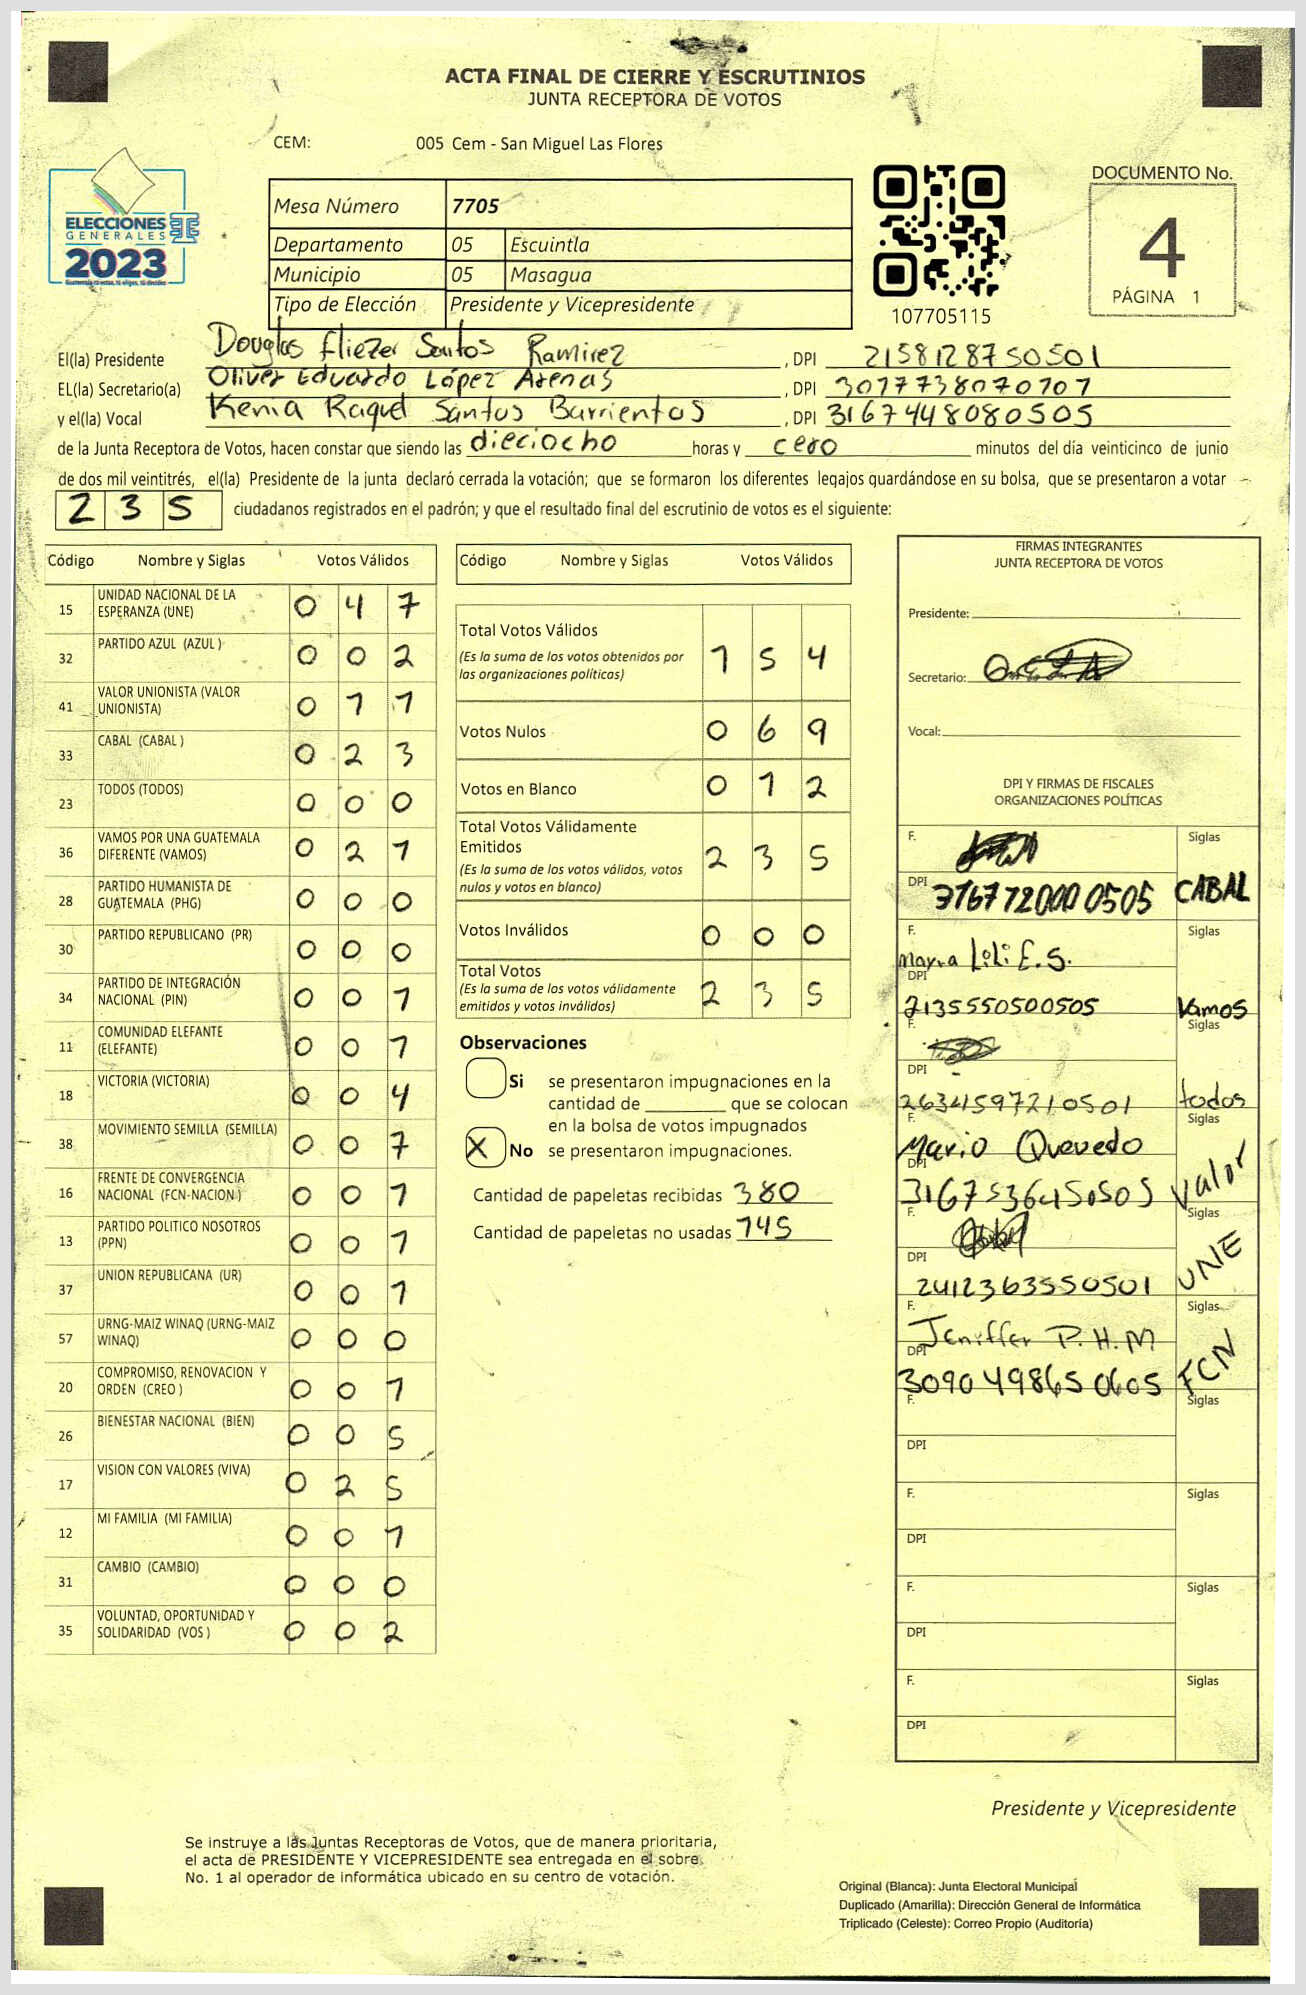 ACTA FINAL DE CIERRE Y ESCRUTINIOS
JUNTA RECEPTORA DE VOTOS
CEM: 005 Cem - San Miguel Las Flores
ELECCIONES
GENERALES
2023
Mesa Número 7705
Departamento 05 Escuintla
Municipio 05 Masagua
Tipo de Elección Presidente y Vicepresidente
107705115
DOCUMENTO No.
4
PÁGINA 1
El(la) Presidente Douglas Eliezer Santos Ramirez, DPI 2158128750501
EL(la) Secretario(a) Oliver Eduardo López Arenas, DPI 3077738070707
y el(la) Vocal Kenia Raquel Santos Barrientos, DPI 3167448080505
de la Junta Receptora de Votos, hacen constar que siendo las dieciocho horas y cero minutos del día veinticinco de junio
de dos mil veintitrés, el(la) Presidente de la junta declaró cerrada la votación; que se formaron los diferentes legajos guardándose en su bolsa, que se presentaron a votar
235 ciudadanos registrados en el padrón; y que el resultado final del escrutinio de votos es el siguiente:
Código Nombre y Siglas Votos Válidos
15 UNIDAD NACIONAL DE LA ESPERANZA (UNE) 0 4 7
32 PARTIDO AZUL (AZUL ) 0 0 2
41 VALOR UNIONISTA (VALOR UNIONISTA) 0 1 1
33 CABAL (CABAL ) 0 2 3
23 TODOS (TODOS) 0 0 0
36 VAMOS POR UNA GUATEMALA DIFERENTE (VAMOS) 0 2 1
28 PARTIDO HUMANISTA DE GUATEMALA (PHG) 0 0 0
30 PARTIDO REPUBLICANO (PR) 0 0 0
34 PARTIDO DE INTEGRACIÓN NACIONAL (PIN) 0 0 1
11 COMUNIDAD ELEFANTE (ELEFANTE) 0 0 1
18 VICTORIA (VICTORIA) 0 0 4
38 MOVIMIENTO SEMILLA (SEMILLA) 0 0 7
16 FRENTE DE CONVERGENCIA NACIONAL (FCN-NACION ) 0 0 1
13 PARTIDO POLITICO NOSOTROS (PPN) 0 0 1
37 UNION REPUBLICANA (UR) 0 0 1
57 URNG-MAIZ WINAQ (URNG-MAIZ WINAQ) 0 0 0
20 COMPROMISO, RENOVACION Y ORDEN (CREO ) 0 0 1
26 BIENESTAR NACIONAL (BIEN) 0 0 5
17 VISION CON VALORES (VIVA) 0 2 5
12 MI FAMILIA (MI FAMILIA) 0 0 1
31 CAMBIO (CAMBIO) 0 0 0
35 VOLUNTAD, OPORTUNIDAD Y SOLIDARIDAD (VOS ) 0 0 2
Código Nombre y Siglas Votos Válidos
Total Votos Válidos 1 5 4
(Es la suma de los votos obtenidos por
las organizaciones políticas)
Votos Nulos 0 6 9
Votos en Blanco 0 1 2
Total Votos Válidamente
Emitidos 2 3 5
(Es la suma de los votos válidos, votos
nulos y votos en blanco)
Votos Inválidos 0 0 0
Total Votos 2 3 5
(Es la suma de los votos válidamente
emitidos y votos inválidos)
Observaciones
Si se presentaron impugnaciones en la
cantidad de ________ que se colocan
en la bolsa de votos impugnados
X No se presentaron impugnaciones.
Cantidad de papeletas recibidas 380
Cantidad de papeletas no usadas 145
FIRMAS INTEGRANTES
JUNTA RECEPTORA DE VOTOS
Presidente:
Secretario:
Vocal:
DPI Y FIRMAS DE FISCALES
ORGANIZACIONES POLÍTICAS
F. Siglas
DPI 3167720000505 CABAL
F. Mayra Lili E.S. Siglas
DPI 2135550500505 Vamos
F. Siglas
DPI 2634597210501 todos
F. Mario Quevedo Siglas
DPI 3167536450505 Valor
F. Siglas
DPI 2412363550501 UNE
F. Jeniffer P.H.M Siglas
DPI 3090498650605 FCN
F. Siglas
DPI
F. Siglas
DPI
F. Siglas
DPI
F. Siglas
DPI
Presidente y Vicepresidente
Se instruye a las Juntas Receptoras de Votos, que de manera prioritaria,
el acta de PRESIDENTE Y VICEPRESIDENTE sea entregada en el sobre
No. 1 al operador de informática ubicado en su centro de votación.
Original (Blanca): Junta Electoral Municipal
Duplicado (Amarilla): Dirección General de Informática
Triplicado (Celeste): Correo Propio (Auditoría)